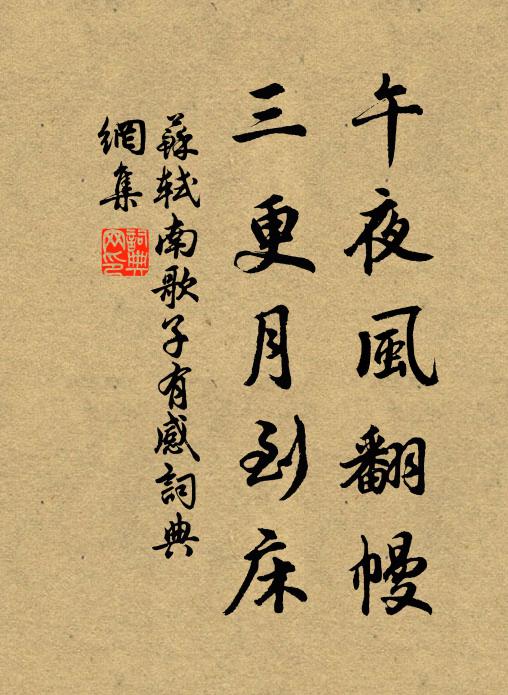 午夜風翻幔
三更月到床
蘇軾南歌子有感詞典
網集
詞典
网印